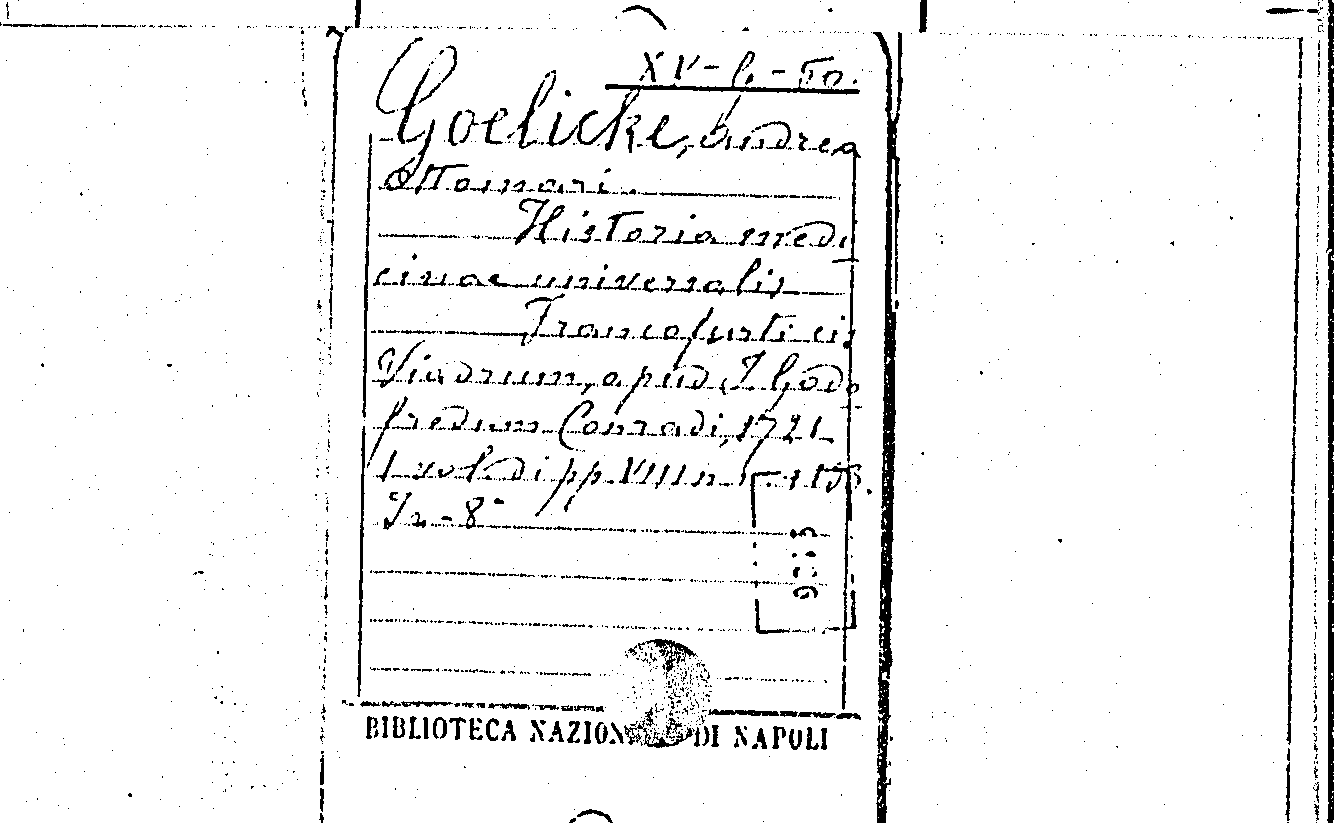 XV-G-50.
Goelicke, Andrea
Ottomari.
Historia medi
cinae universalis
Francofurti cis
Viadrum, apud J. Godo
fredum Conradi, 1721
1 vol. di pp. VIII n
In-8°
BIBLIOTECA NAZIONALE DI NAPOLI